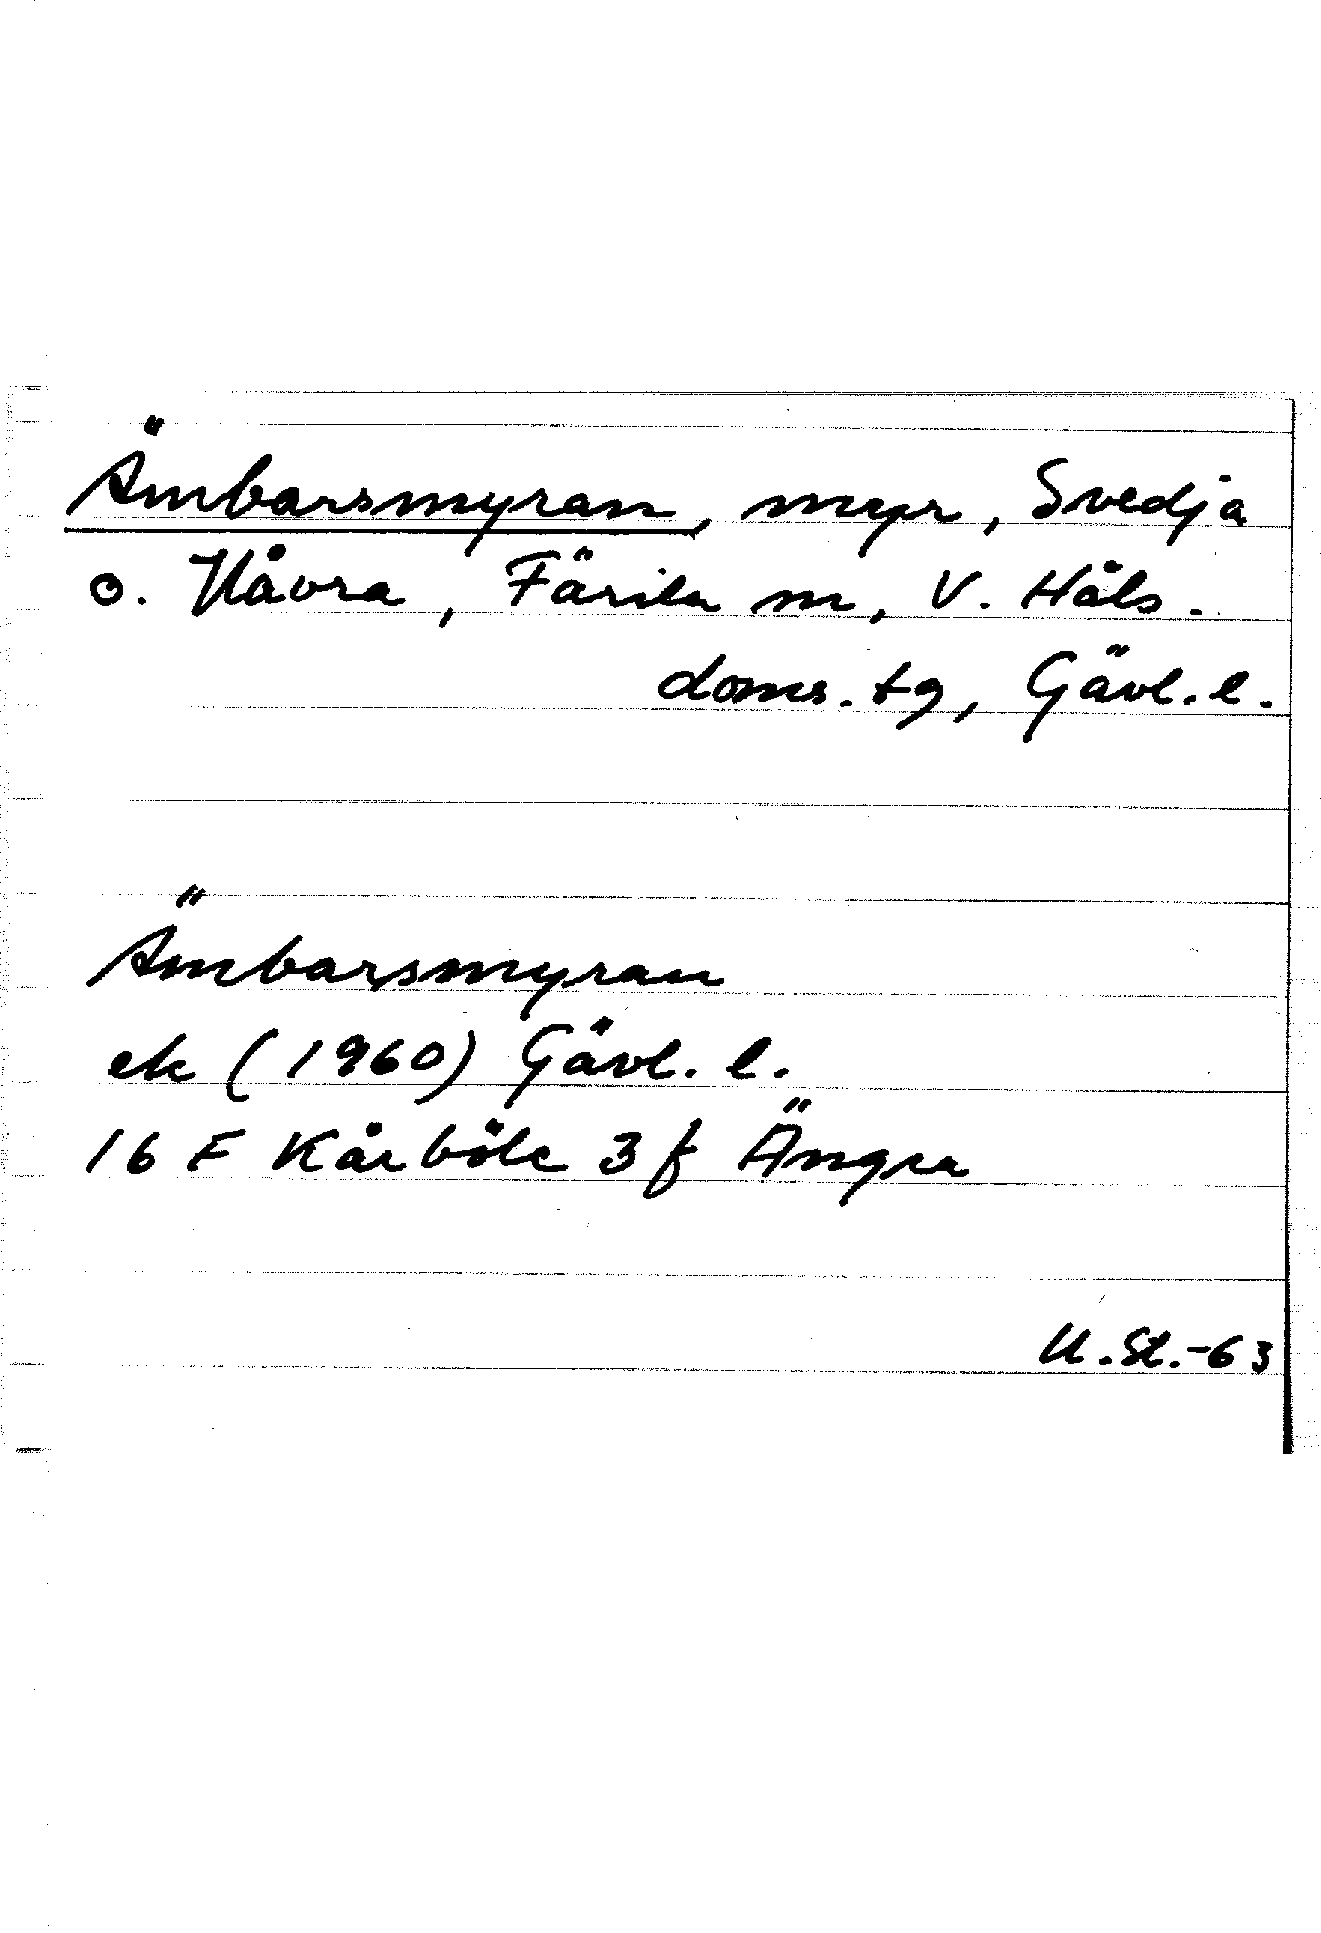 Ämbarsmyran, myr, Svedja
o. Håvra, Färila sn, V. Häls.
doms. tg, Gävl. l.
Ämbarsmyran
ek (1960) Gävl. l.
16 F Kårböle 3 f Ängra
U. St. -63